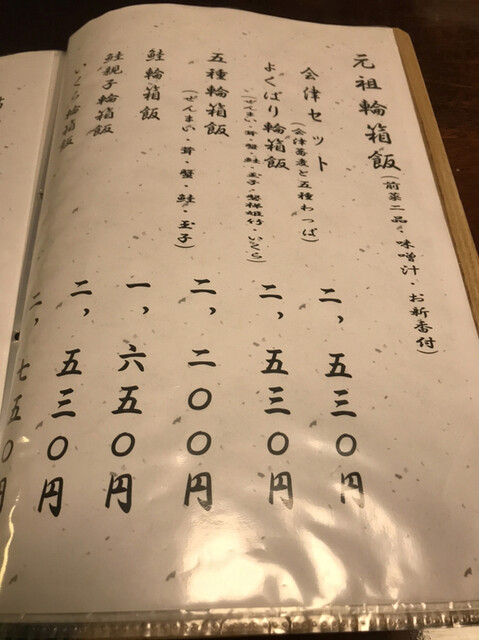 元祖輪箱飯（前菜二品・味噌汁・お新香付）
会津セット
（会津蕎麦と五種わっぱ）
二、五三〇円
よくばり輪箱飯
二、五三〇円
五種輪箱飯
（ぜんまい・茸・蟹・鮭・玉子）
二、二〇〇円
鮭輪箱飯
一、六五〇円
鮭親子輪箱飯
二、五三〇円
いくら輪箱飯
二、七五〇円